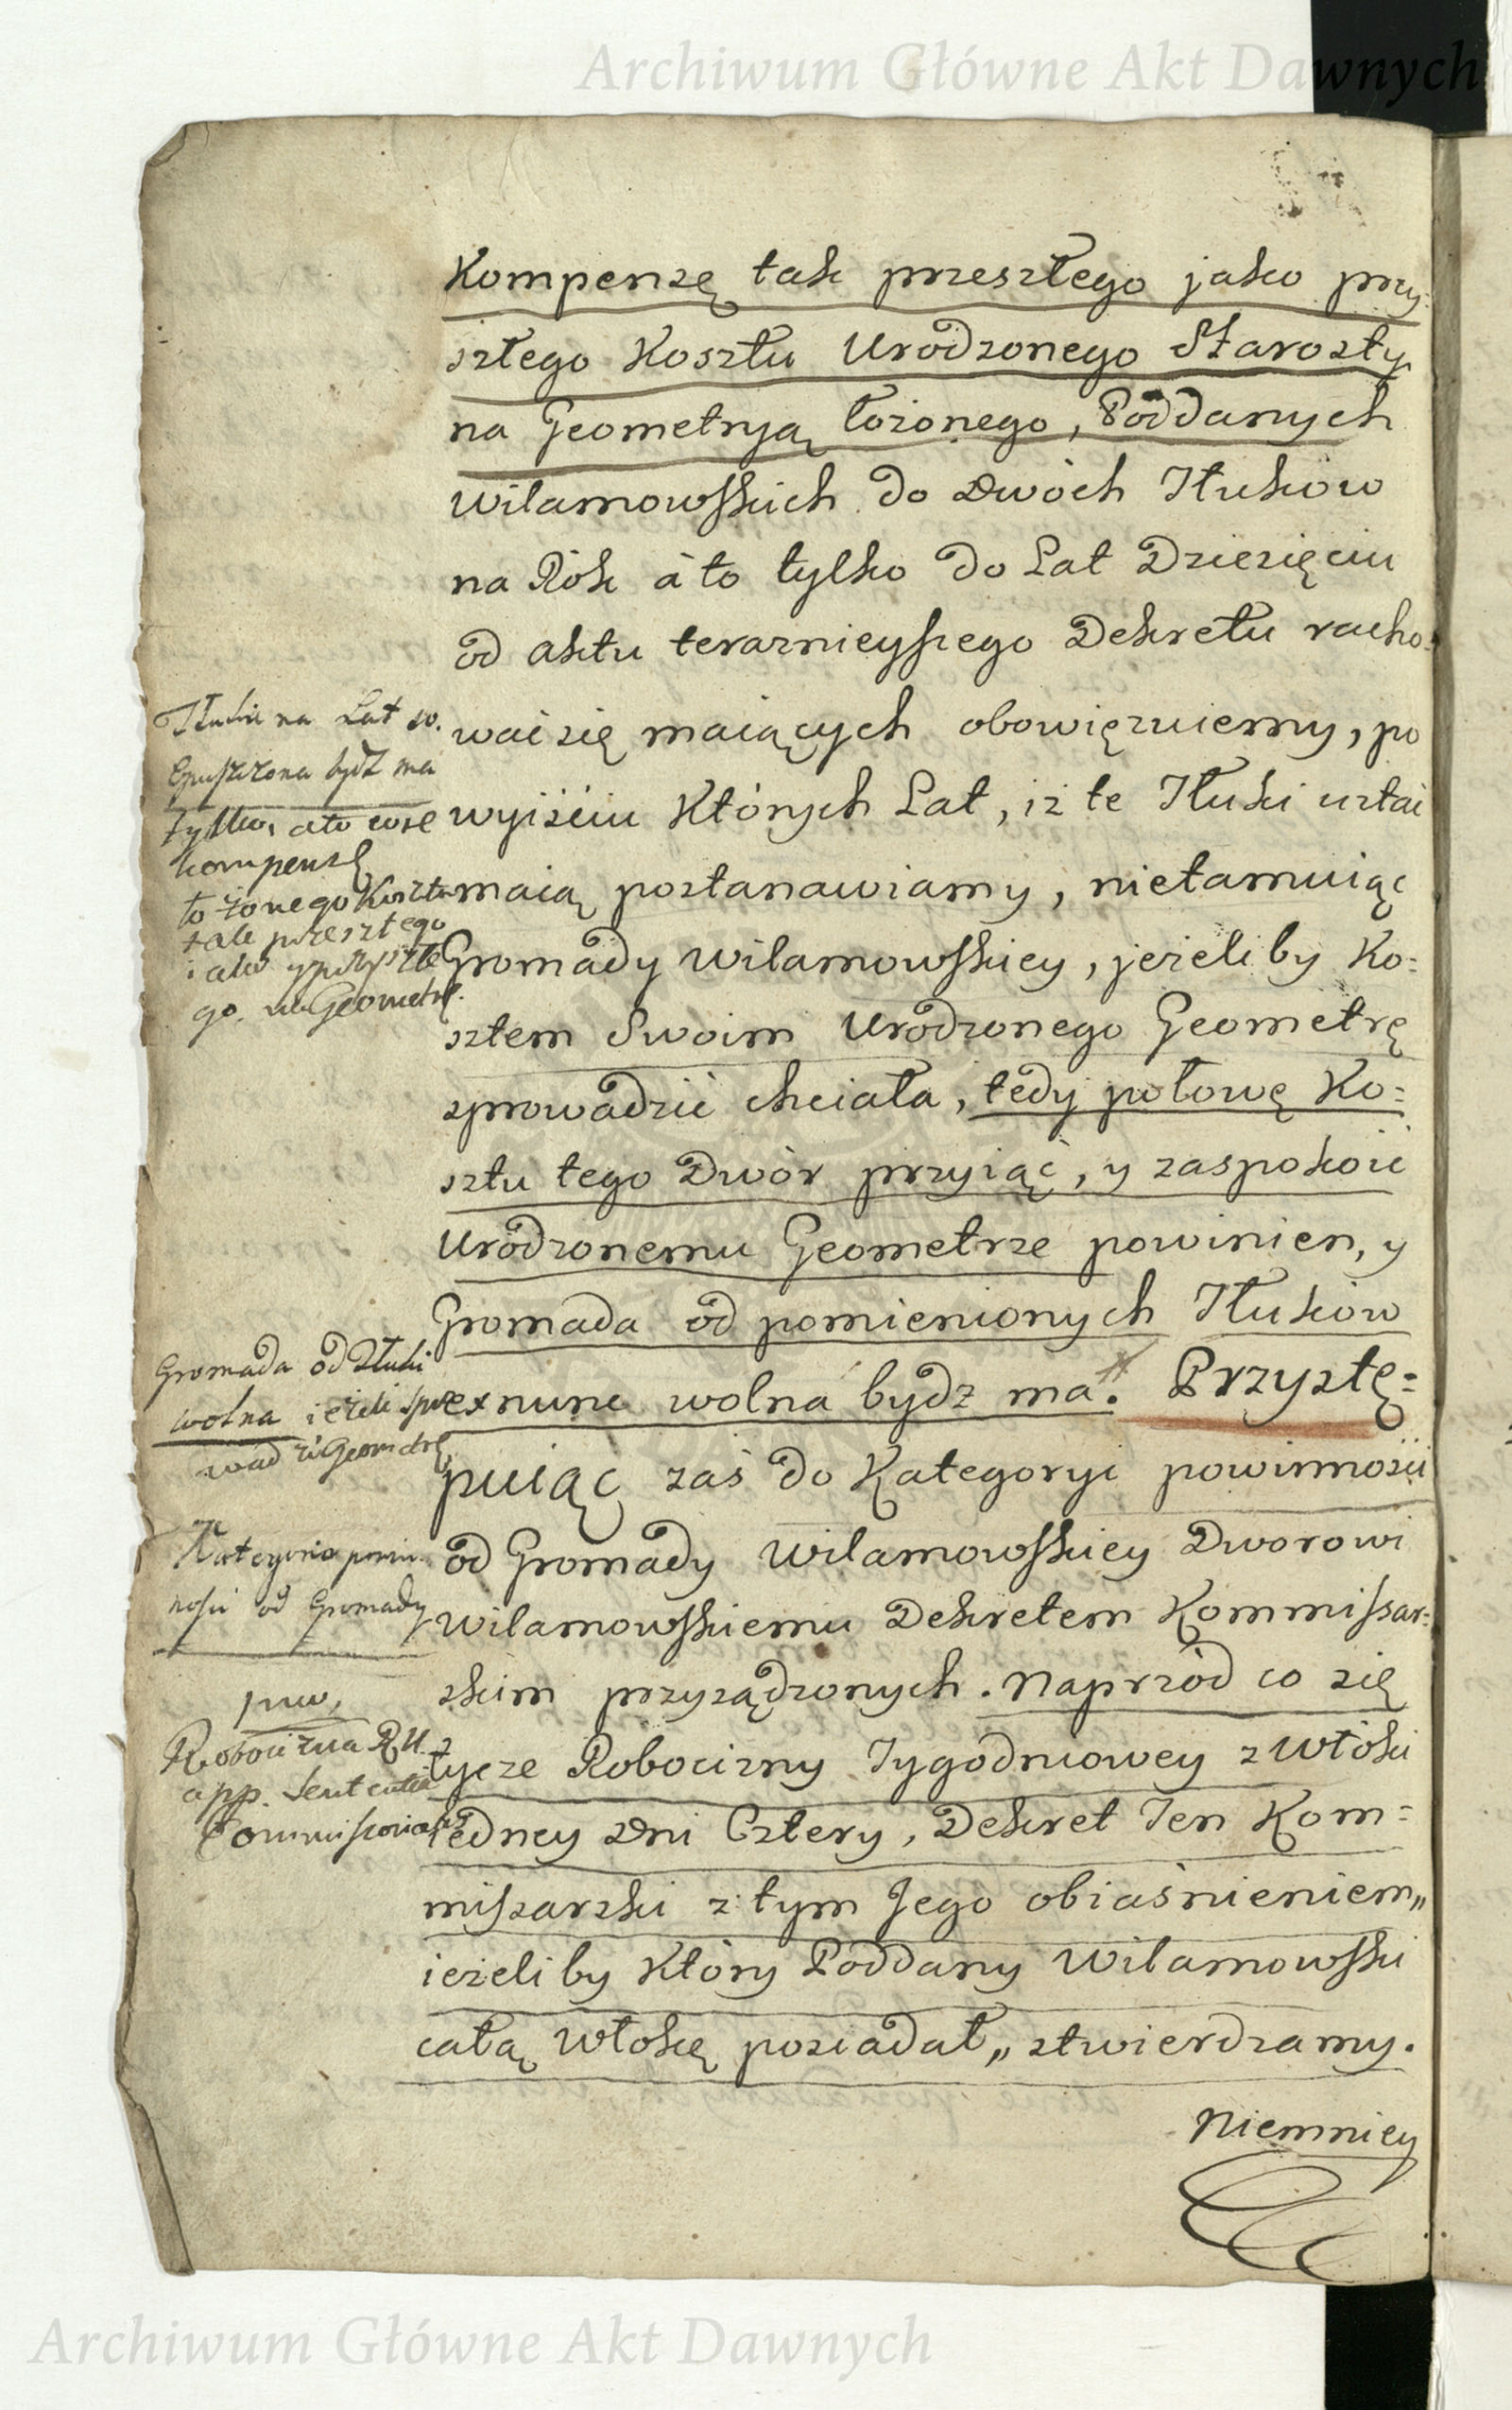 Archiwum Główne Akt Dawnych
Kompenzę tak przeszłego jako przy-
szłego Kosztu Urodzonego Starosty
na Geometryją łożonego, Poddanych
Wilamowskich do Dwóch Tłuków
na Rok à to tylko do Lat Dziesięciu
od aktu terazniejszego Dekretu racho=
wać się maiących obowięzuiemy, po
wyiściu Których Lat, iż te Tłuki ustać
maią postanawiamy, nietamuiąc
Gromady Wilamowskiey, jeżeli by Ko=
sztem Swoim Urodzonego Geometrę
sprowadzić chciała, tedy połowę Ko=
sztu tego Dwór przyiąć, y zaspokoić
Urodzonemu Geometrze powinien, y
Gromada od pomienionych Tłuków
ex nunc wolna bydz ma. Przystę=
puiąc zaś do Kategoryi powinności
od Gromady Wilamowskiey Dworowi
Wilamowskiemu Dekretem Kommissar=
skim przysądzonych. Naprzód co się
tycze Robocizny Tygodniowey z Włóki
iedney Dni Cztery, Dekret Ten Kom=
missarski z tym Jego obiaśnieniem„
ieżeli by Który Poddany Wilamowski
całą Włokę posiadał„ stwierdzamy.
Niemniey
Tłuki na Lat 10.
bydź ma
tylko, a to
kompensę
łożonego Kosztu
tak przeszłego
iako y przyszłe
go. na Geometrę.
Gromada od Tłuki
wolna ieżeli spro
wadzi Geometrę
Kategoria powin
ności od Gromady
pmo,
Robocizna
app. Sententia
Commissorial
Archiwum Główne Akt Dawnych